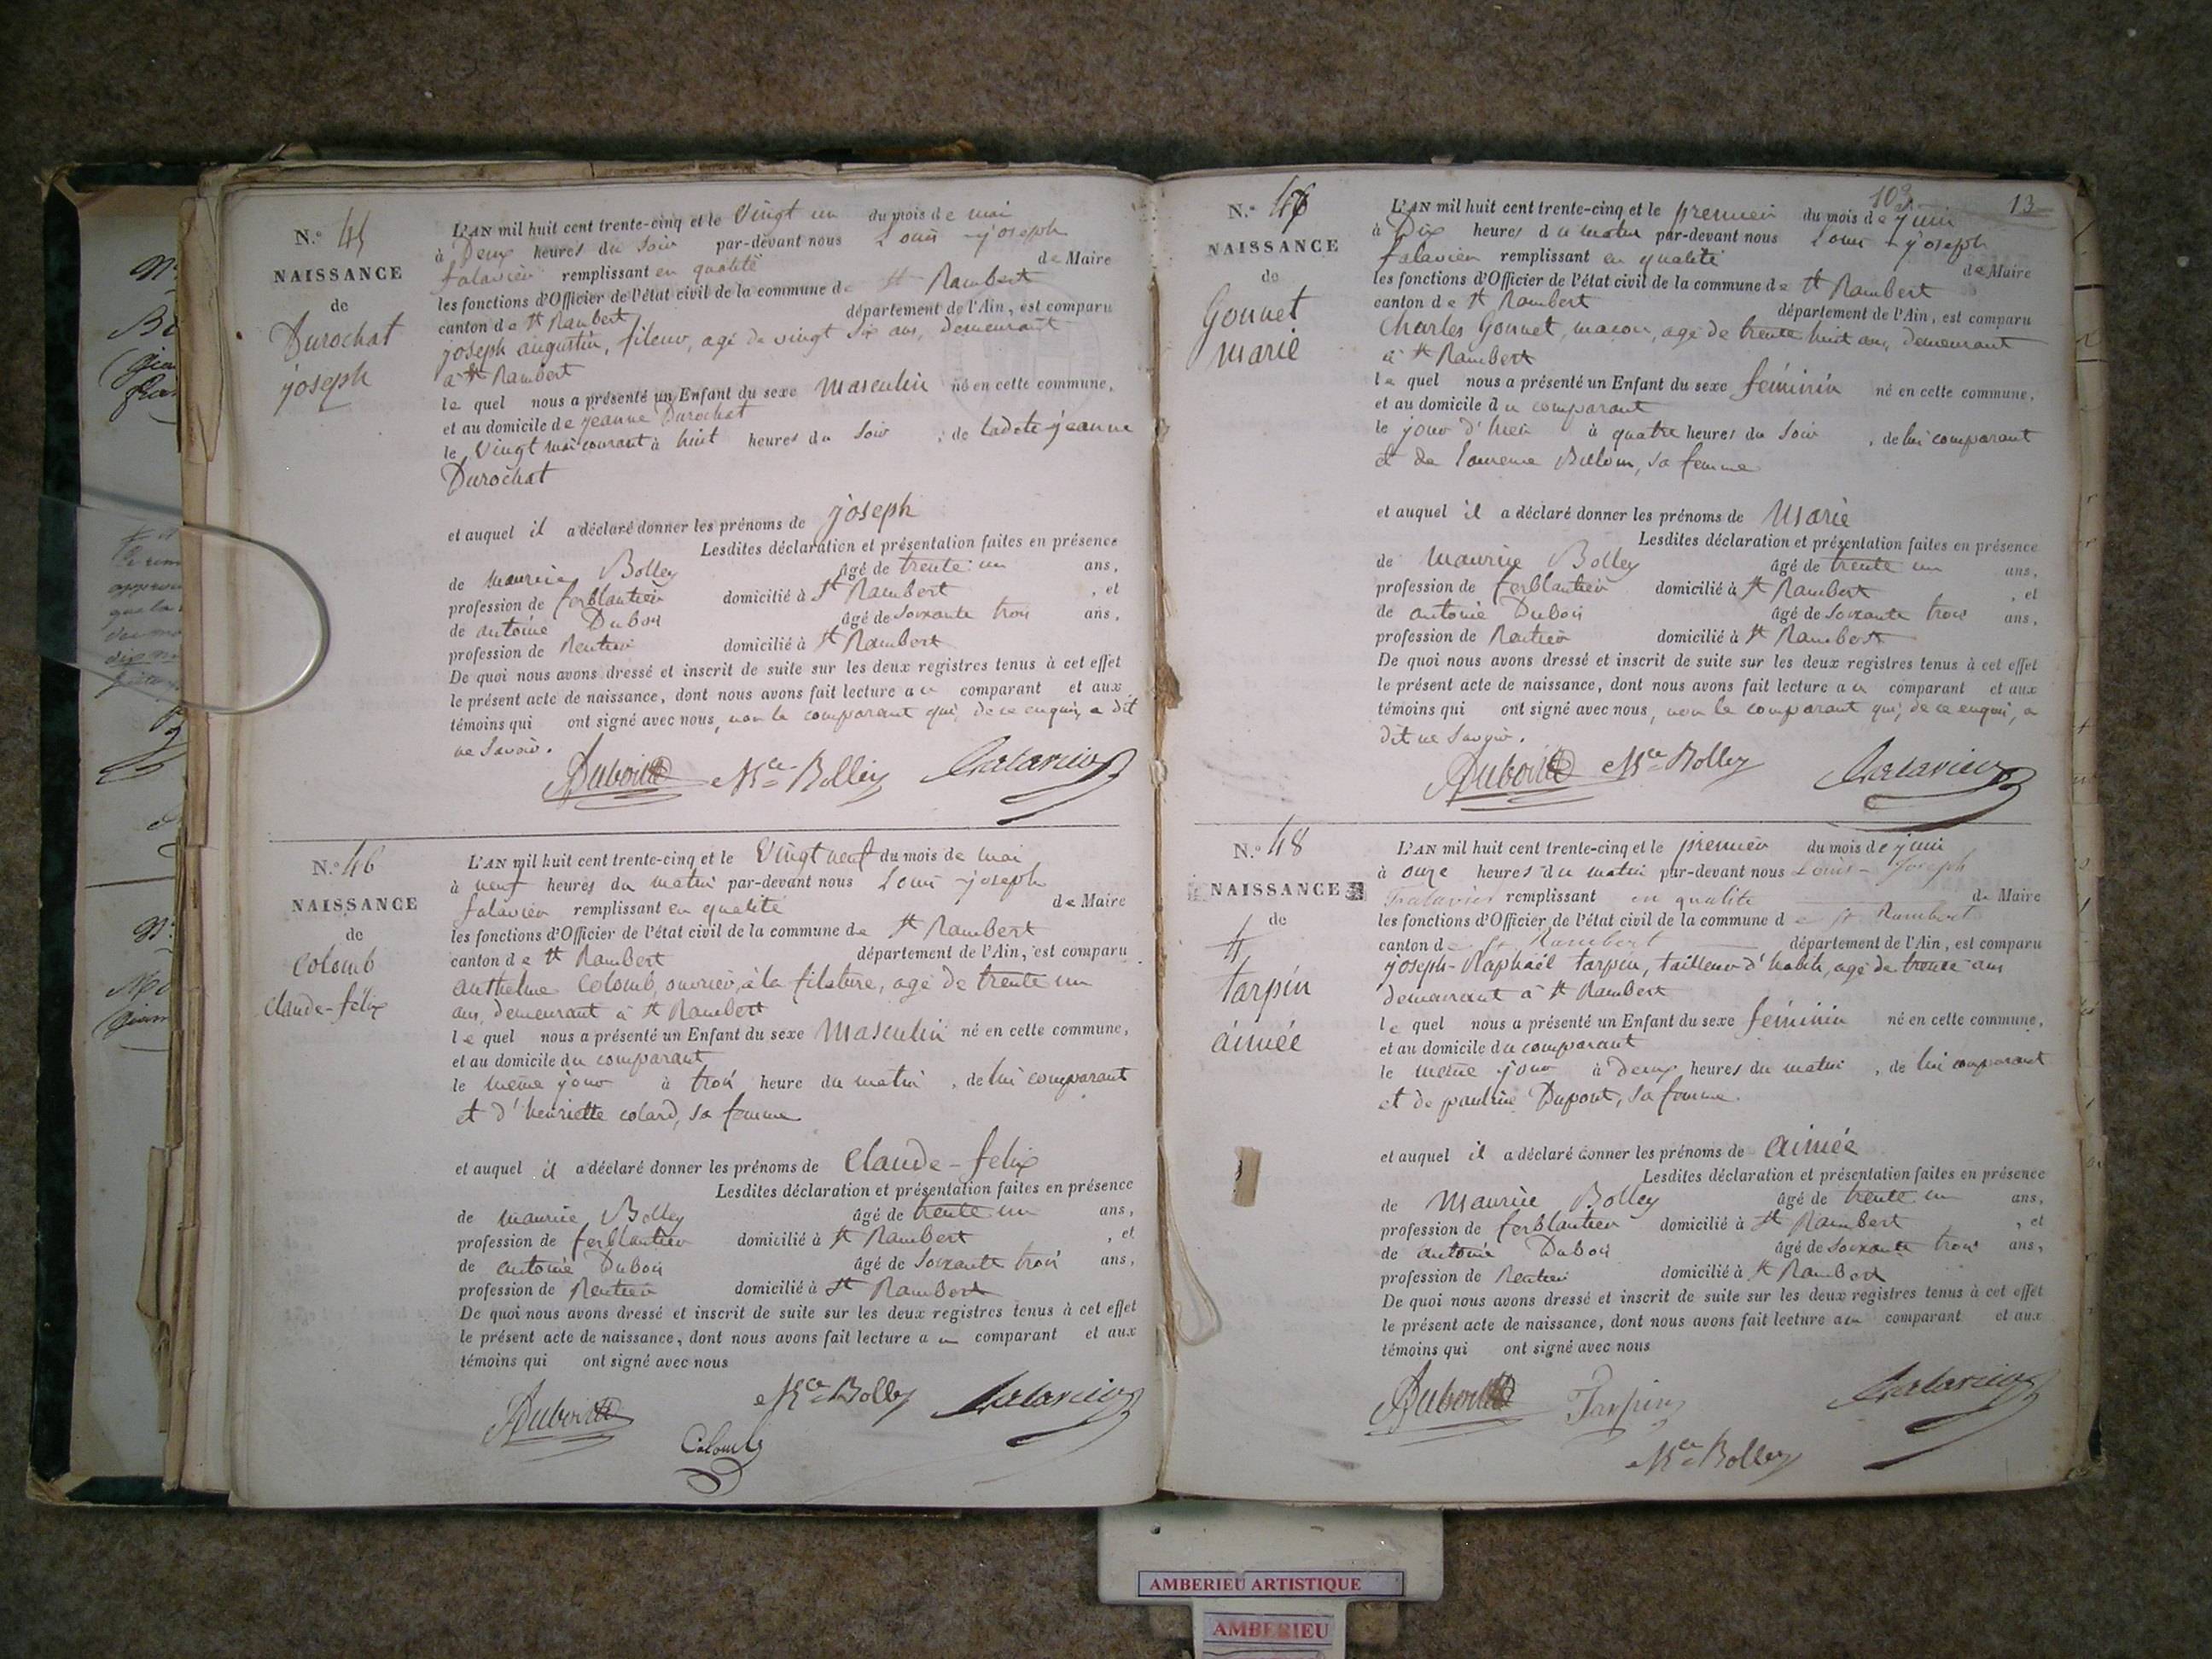 N.º 45
NAISSANCE
de
Durochat
joseph
L'AN mil huit cent trente-cinq et le Vingt un du mois de mai
à Deux heures du Soir par-devant nous Louis-joseph
falavier remplissant en qualité de Maire
les fonctions d'Officier de l'état civil de la commune de St Rambert
canton de St Rambert département de l'Ain, est comparu
joseph augustin, fileur, agé de vingt six ans, demeurant
à St Rambert
le quel nous a présenté un Enfant du sexe Masculin né en cette commune,
et au domicile de jeanne Durochat
le Vingt mai courant à huit heures du Soir , de ladite jeanne
Durochat
et auquel il a déclaré donner les prénoms de joseph
Lesdites déclaration et présentation faites en présence
de maurice Bolley âgé de trente un ans,
profession de ferblantier domicilié à St Rambert , et
de antoine Dubois âgé de Soixante trois ans,
profession de Rentier domicilié à St Rambert
De quoi nous avons dressé et inscrit de suite sur les deux registres tenus à cet effet
le présent acte de naissance, dont nous avons fait lecture au comparant et aux
témoins qui ont signé avec nous, non le comparant qui, de ce enquis, a dit
ne Savoir.
Dubois Mce Bolley
N.º 46
NAISSANCE
de
Colomb
claude-félix
L'AN mil huit cent trente-cinq et le Vingt neuf du mois de mai
à neuf heures du matin par-devant nous Louis-joseph
falavier remplissant en qualité de Maire
les fonctions d'Officier de l'état civil de la commune de St Rambert
canton de St Rambert département de l'Ain, est comparu
anthelme Colomb, ouvrier à la filature, agé de trente un
ans, demeurant à St Rambert
le quel nous a présenté un Enfant du sexe Masculin né en cette commune,
et au domicile du comparant
le même jour à trois heure du matin , de lui comparant
et d'henriette colard, sa femme
et auquel il a déclaré donner les prénoms de Claude-felix
Lesdites déclaration et présentation faites en présence
de maurice Bolley âgé de trente un ans,
profession de ferblantier domicilié à St Rambert , et
de antoine Dubois âgé de Soixante trois ans,
profession de Rentier domicilié à St Rambert
De quoi nous avons dressé et inscrit de suite sur les deux registres tenus à cet effet
le présent acte de naissance, dont nous avons fait lecture au comparant et aux
témoins qui ont signé avec nous
Dubois Mce Bolley
Colomb
103. 13
N.º 47
NAISSANCE
de
Gonnet
marie
L'AN mil huit cent trente-cinq et le premier du mois de juin
à Dix heures du matin par-devant nous Louis-joseph
falavier remplissant en qualité de Maire
les fonctions d'Officier de l'état civil de la commune de St Rambert
canton de St Rambert département de l'Ain, est comparu
Charles Gonnet, maçon, agé de trente huit ans, demeurant
à St Rambert
le quel nous a présenté un Enfant du sexe féminin né en cette commune,
et au domicile du comparant
le jour d'hier à quatre heures du Soir , de lui comparant
et de sa femme
et auquel il a déclaré donner les prénoms de Marie
Lesdites déclaration et présentation faites en présence
de maurice Bolley âgé de trente un ans,
profession de ferblantier domicilié à St Rambert , et
de antoine Dubois âgé de Soixante trois ans,
profession de Rentier domicilié à St Rambert
De quoi nous avons dressé et inscrit de suite sur les deux registres tenus à cet effet
le présent acte de naissance, dont nous avons fait lecture au comparant et aux
témoins qui ont signé avec nous, non le comparant qui, de ce enquis, a
dit ne Savoir.
Dubois Mce Bolley
N.º 48
NAISSANCE
de
tarpin
aimée
L'AN mil huit cent trente-cinq et le premier du mois de juin
à onze heures du matin par-devant nous Louis-Joseph
Falavier remplissant en qualité de Maire
les fonctions d'Officier de l'état civil de la commune de St Rambert
canton de St Rambert département de l'Ain, est comparu
joseph-Raphaël tarpin, tailleur d'habits, agé de trente ans
demeurant à St Rambert
le quel nous a présenté un Enfant du sexe féminin né en cette commune,
et au domicile du comparant
le même jour à deux heures du matin , de lui comparant
et de pauline Dupont, sa femme.
et auquel il a déclaré donner les prénoms de aimée
Lesdites déclaration et présentation faites en présence
de Maurice Bolley âgé de trente un ans,
profession de ferblantier domicilié à St Rambert , et
de antoine Dubois âgé de Soixante trois ans,
profession de Rentier domicilié à St Rambert
De quoi nous avons dressé et inscrit de suite sur les deux registres tenus à cet effet
le présent acte de naissance, dont nous avons fait lecture au comparant et aux
témoins qui ont signé avec nous
Dubois Tarpin
Mce Bolley
AMBERIEU ARTISTIQUE
AMBERIEU